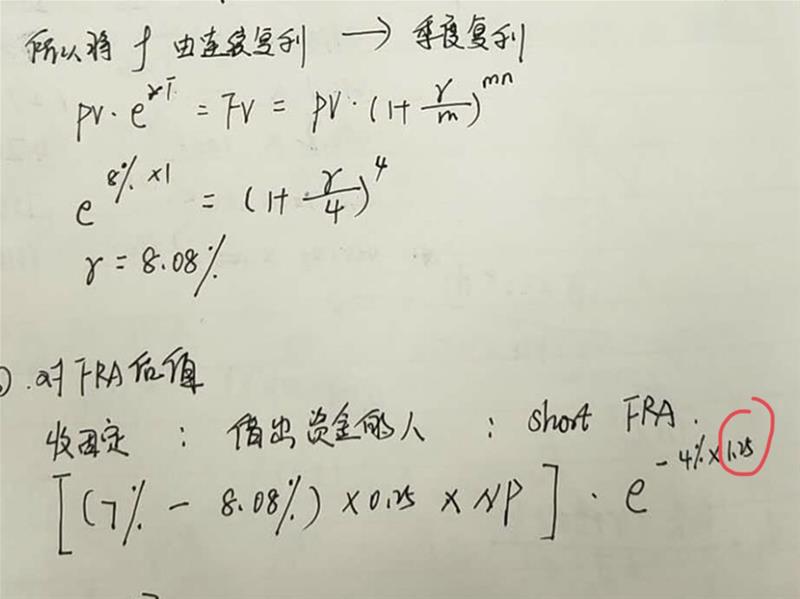 所以将 f 由连续复利 → 季度复利
PV·e^{rT} = FV = PV·(1+\frac{r}{m})^{mn}
e^{8%×1} = (1+\frac{r}{4})^4
r = 8.08%
.对FRA估值
收固定 : 借出资金的人 : short FRA.
[(7% - 8.08%) ×0.25 × NP]·e^{-4%×1.25}